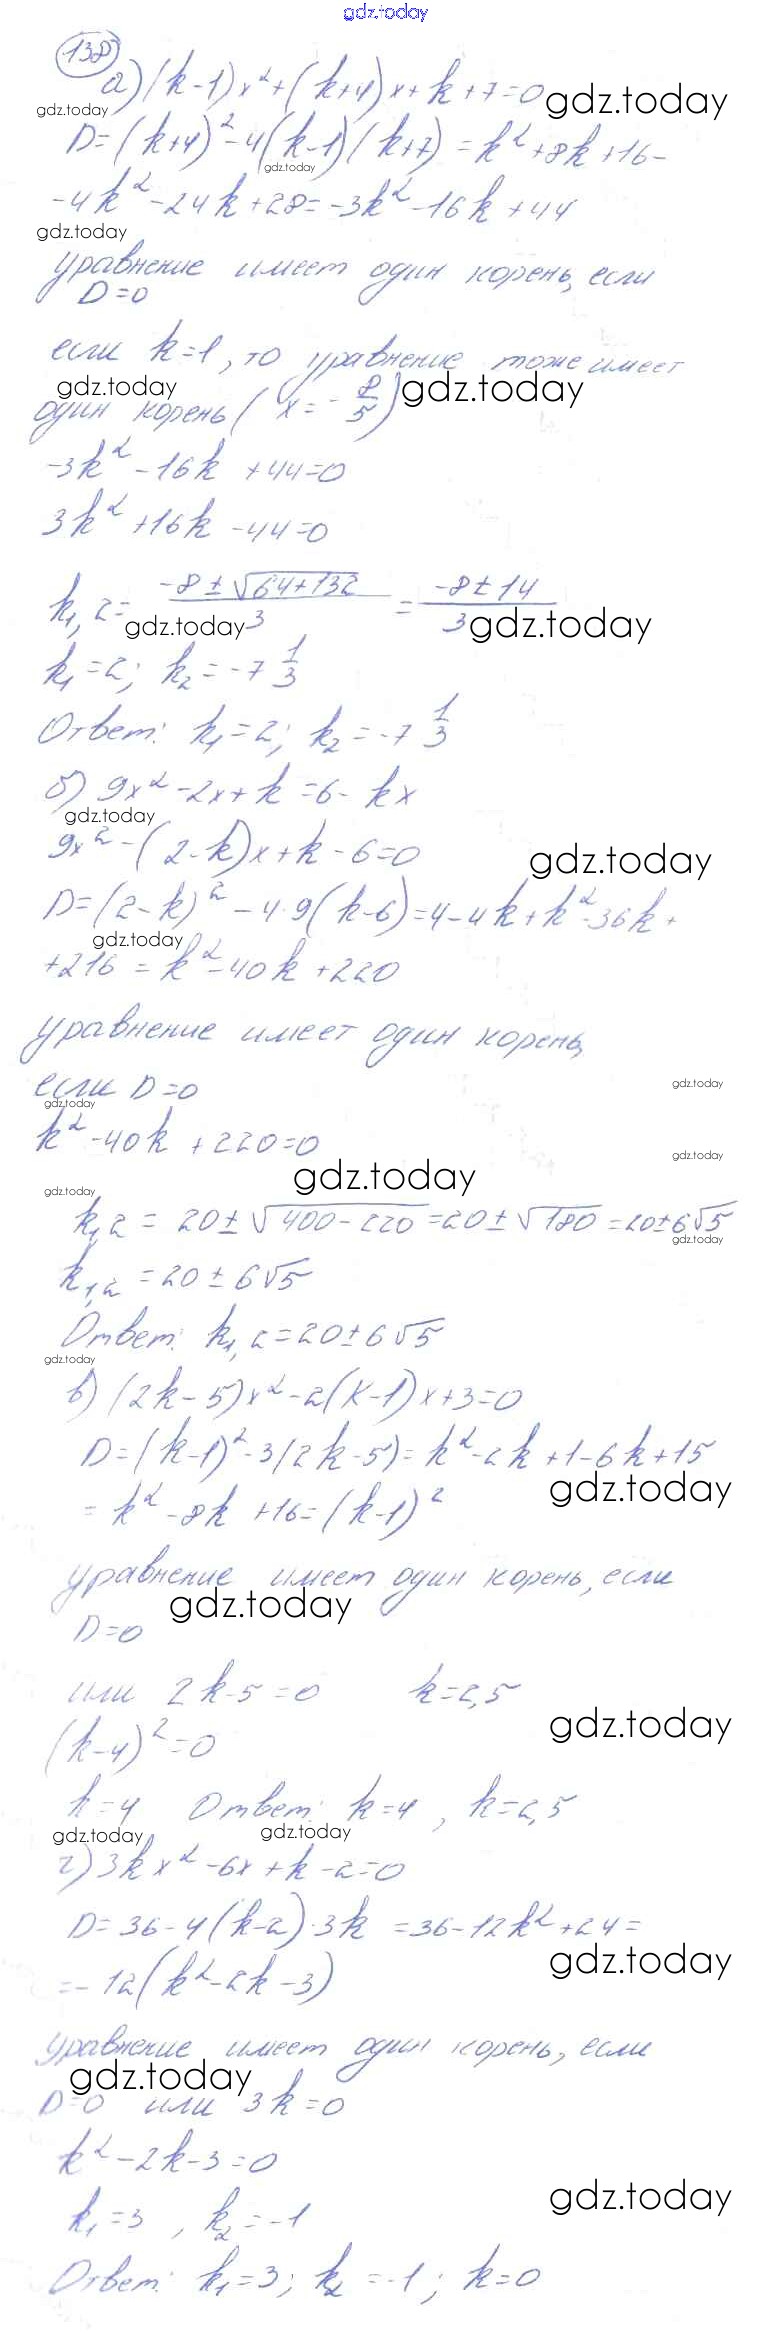 gdz.today
138
а) (k-1)x²+(k+4)x+k+7=0
gdz.today gdz.today
D=(k+4)²-4(k-1)(k+7)=k²+8k+16-
gdz.today
-4k²-24k+28=-3k²-16k+44
gdz.today
уравнение имеет один корень, если
D=0
если k=1, то уравнение тоже имеет
gdz.today gdz.today
один корень (x=-8/5)
-3k²-16k+44=0
3k²+16k-44=0
k₁,₂=(-8±√(64+132))/3=(-8±14)/3
gdz.today gdz.today
k₁=2; k₂=-7 1/3
Ответ: k₁=2; k₂=-7 1/3
б) 9x²-2x+k=6-kx
gdz.today
9x²-(2-k)x+k-6=0
gdz.today
D=(2-k)²-4·9(k-6)=4-4k+k²-36k+
gdz.today
+216=k²-40k+220
уравнение имеет один корень,
если D=0
gdz.today
gdz.today
k²-40k+220=0
gdz.today
gdz.today
gdz.today
k₁,₂=20±√(400-220)=20±√180=20±6√5
gdz.today
k₁,₂=20±6√5
Ответ: k₁,₂=20±6√5
gdz.today
в) (2k-5)x²-2(k-1)x+3=0
D=(k-1)²-3(2k-5)=k²-2k+1-6k+15
gdz.today
=k²-8k+16=(k-1)²
уравнение имеет один корень, если
gdz.today
D=0
или 2k-5=0 k=2,5
gdz.today
(k-4)²=0
k=4 Ответ: k=4, k=2,5
gdz.today gdz.today
г) 3kx²-6x+k-2=0
D=36-4(k-2)·3k=36-12k²+24=
gdz.today
=-12(k²-2k-3)
уравнение имеет один корень, если
gdz.today
D=0 или 3k=0
k²-2k-3=0
gdz.today
k₁=3, k₂=-1
Ответ: k₁=3; k₂=-1; k=0